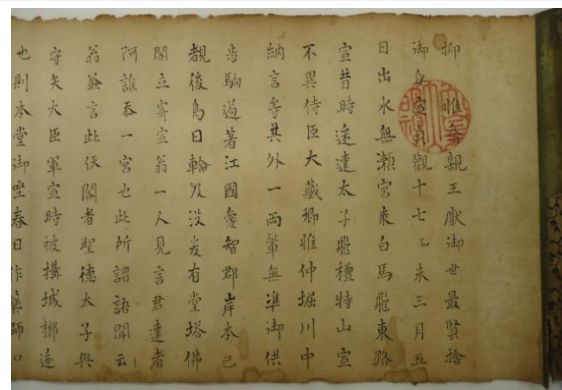 抑惟喬親王御世最賢捨
御貞觀十七乙未三月五
日出水無瀬宮乗白馬飛東路
宣昔時達太子飛檀特山宣
不異侍臣大藏卿惟仲堀川中
納言等其外一兩輩無準御供
歩駒過著江國愛智郡岸本已
後烏日輪及没爰有堂塔佛
閣立寄宣翁一人見言君達者
阿誰忝一宮也此所謂語聞云
翁答言此伏閣者聖徳太子與
守矢大臣軍宣時被搆城槨
也則本堂御坐春日作藥師